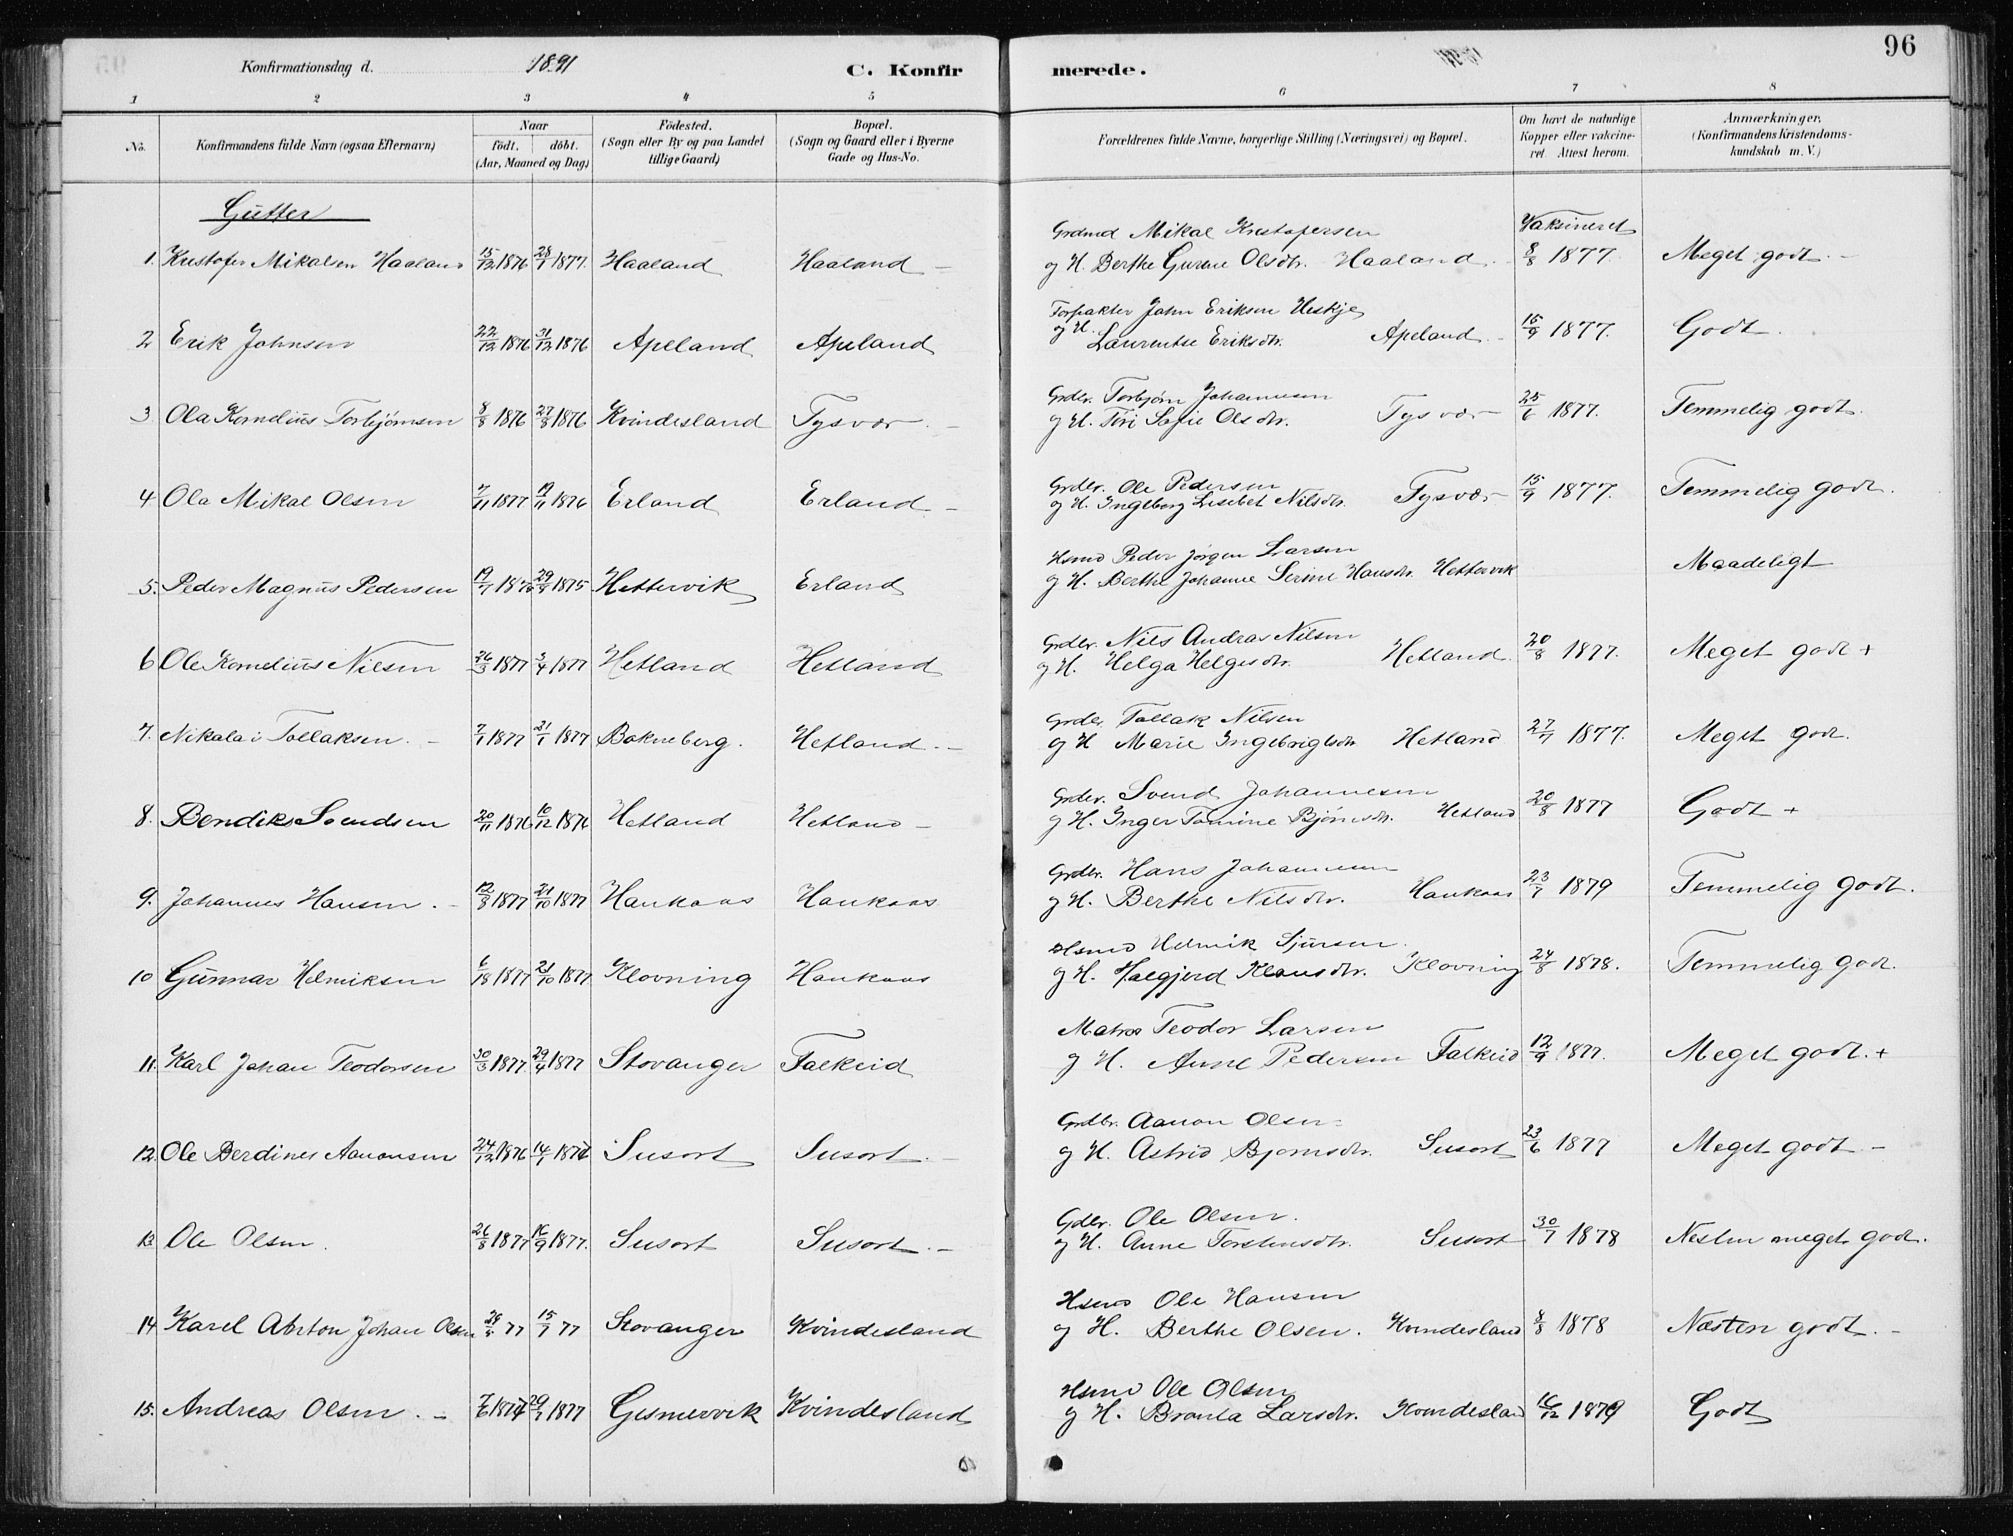 96
Konfirmationsdag d. 1891 C. Konfirmerede.
1 2 3 4 5 6 7 8
No. Konfirmandens fulde Navn (ogsaa Efternavn) Naar født. døbt. (Aar, Maaned og Dag) Fødested. (Sogn eller By og paa Landet tillige Gaard) Bopæl. (Sogn og Gaard eller i Byerne Gade og Hus-No. Forældrenes fulde Navne, borgerlige Stilling (Næringsvei) og Bopæl. Om havt de naturlige Kopper eller vakcineret. Attest herom. Anmærkninger. (Konfirmandens Kristendomskundskab m. V.)
Gutter
Vaksineret
Grdmd Mikal Kristofersen
1. Kristofer Mikalsen Haaland 15/12 1876 28/1 1877. Haaland Haaland – og H. Berthe Gurine Olsdtr. Haaland 8/8 1877. Meget godt. –
Forpakter John Eriksen Heskje
2 Erik Johnsen 22/12 1876 31/12 1876 Apeland Apeland og H. Laurentse Eriksdtr. Apeland 15/9 1877. Godt.
Grdbr. Torbjørn Johannesen
3 Ola Kornelius Torbjørnsen 8/8 1876 27/8 1876 Kvindesland Tysvær. – og H. Tori Sofie Olsdtr. Tysvær 25/6 1877. Temmelig godt.
Grdbr. Ole Pedersen
4 Ola Mikal Olsen 7/11 1877 19/11 1876 Erland Erland – og H. Ingeborg Lisebet Nilsdtr. Tysvær 15/9 1877. Temmelig godt.
Hsmd Peder Jørgen Larsen
5. Peder Magnus Pedersen 19/7 1875 29/8 1875 Hettervik Erland og H. Berthe Johanne Serine Hansdtr. Hettervik Maadeligt
Grdbr. Nils Andras Nilsen
6 Ole Kornelius Nilsen 26/3 1877 3/4 1877 Hetland Hetland og H. Helga Helgesdtr. Hetland 20/8 1877. Meget godt +
Grdbr. Tollak Nilsen
7. Nikolai Tollaksen. – 7/1 1877 21/1 1877 Bokneberg. Hetland. – og H Marie Ingebrigtsdtr Hetland 27/7 1877. Meget godt.
Grdbr. Svend Johannesen
8. Bendiks Svendsen 20/11 1876 10/12 1876 Hetland Hetland – og H. Inger Tomine Bjørnsdtr. Hetland 20/8 1877 Godt +
Grdbr. Hans Johannesen
9. Johannes Hansen. – 12/8 1877 21/10 1877 Haukaas Haukaas og H. Berthe Nilsdtr. Haukaas 23/7 1879 Temmelig godt.
Hsmd Helmik Sjursen
10 Gunnar Helmiksen 6/18 1877 21/10 1877 Klovning Haukaas og H. Halgjerd Klausdtr. Klovning 24/8 1878. Temmelig godt.
Matros Teodor Larsen
11. Karl Johan Teodorsen 30/3 1877. 29/4 1877 Stavanger Falkeid og H. Anne Pedersen Falkeid 12/9 1877. Meget godt. +
Grdbr. Aanon Olsen
12. Ole Berdines Aanonsen 24/12 1876 14/1 1877 Susort Susort. – og H. Astrid Bjørnsdtr. Susort 23/6 1877 Meget godt. –
Gdbr. Ole Olsen.
13 Ole Olsen. 26/8 1877 16/9 1877. Susort Susort. – og H. Anne Torstensdtr. Susort 30/7 1878 Nesten meget godt.
Hsmd Ole Hansen
14 Karel Anton Johan Olsen 77 15/7 77 Stavanger Kvindesland og H. Berthe Olsen. Kvindesland 8/8 1878 Næsten godt. –
Hsmd Ole Olsen
15. Andreas Olsen. – 7/6 1877 29/7 1877 Gismervik Kvindesland og H. Bronla Larsdtr. Kvindesland 16/12 1879 Godt